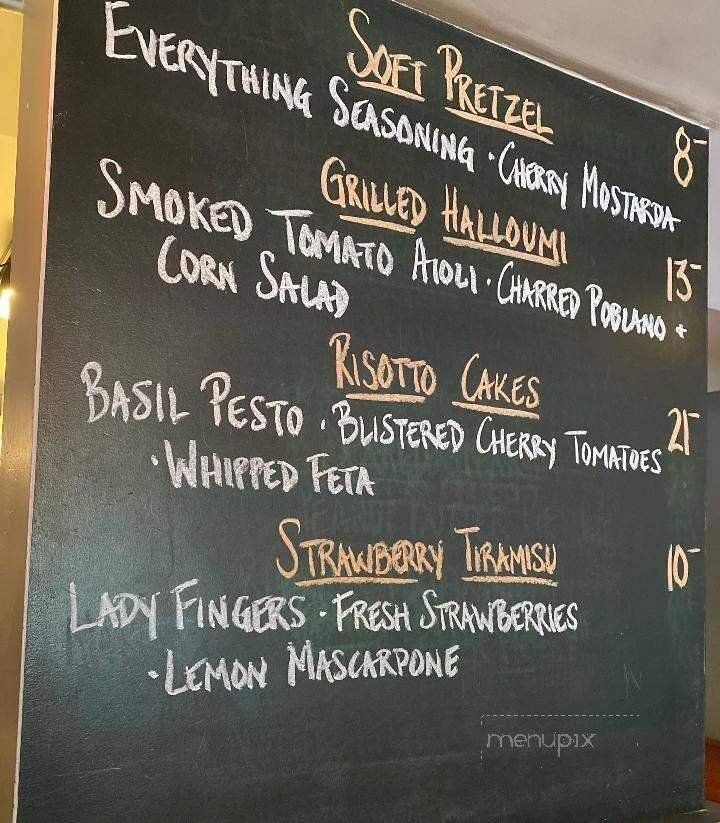 SOFT PRETZEL
EVERYTHING SEASONING · CHERRY MOSTARDA 8-
GRILLED HALLOUMI
SMOKED TOMATO AIOLI · CHARRED POBLANO + 13-
CORN SALAD
RISOTTO CAKES
BASIL PESTO · BLISTERED CHERRY TOMATOES 21-
· WHIPPED FETA
STRAWBERRY TIRAMISU 10-
LADY FINGERS · FRESH STRAWBERRIES
· LEMON MASCARPONE
menupix